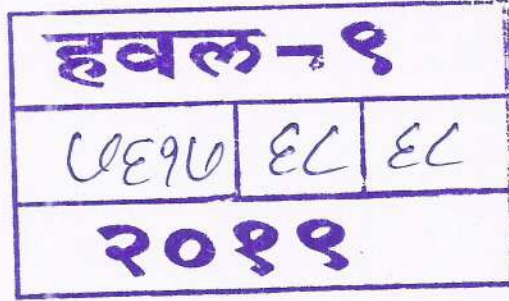 हवल-९
७६१७ ६८ ६८
२०१९